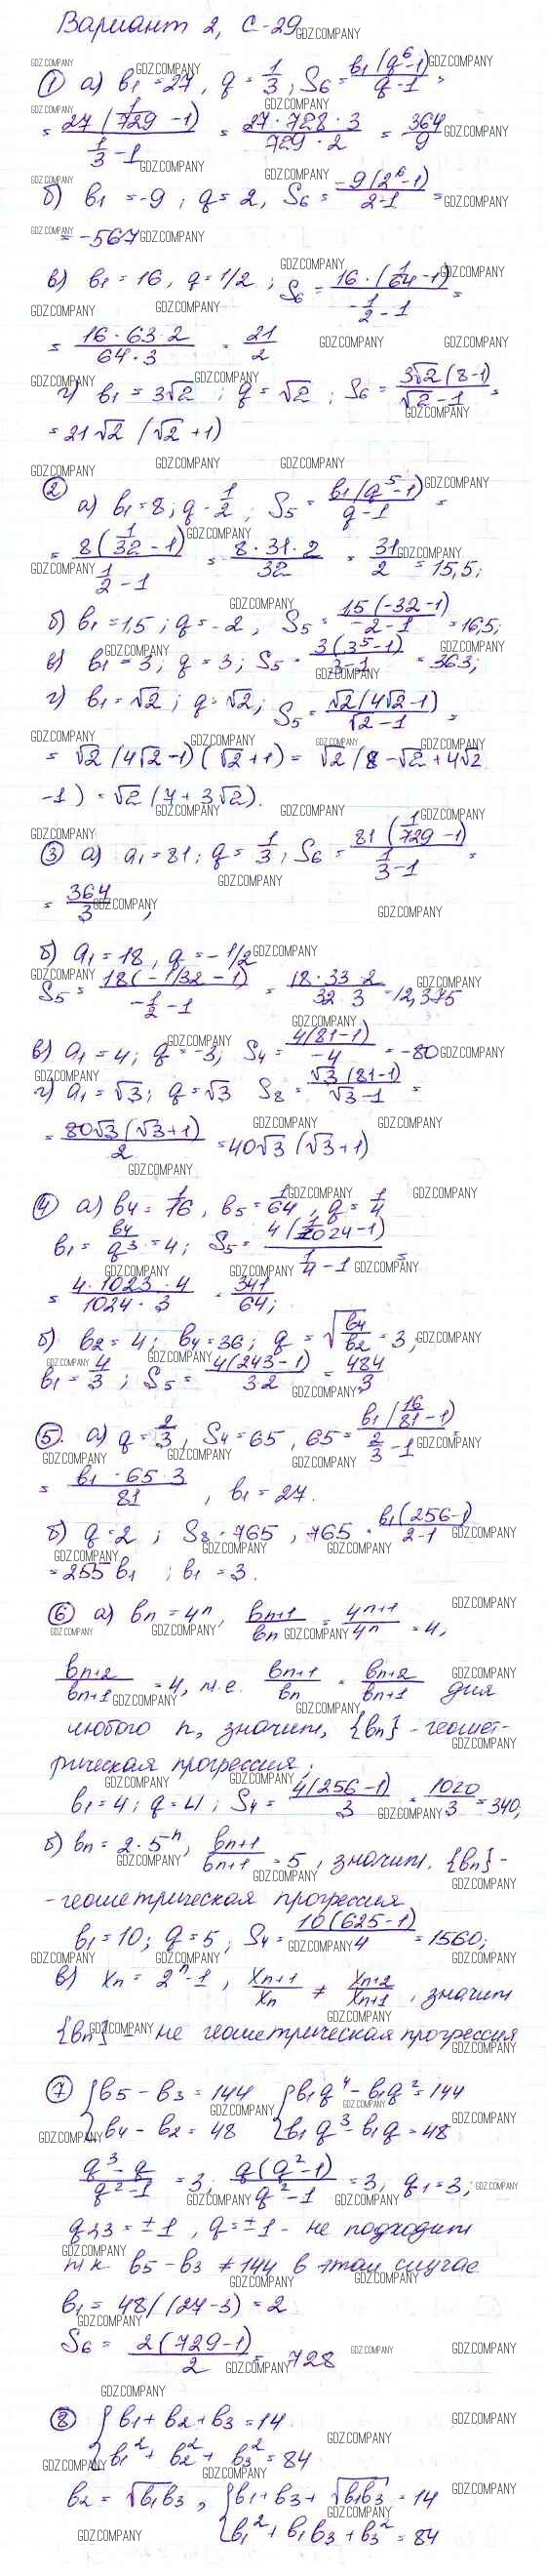 Вариант 2, С-29
① а) b₁ = 27, q = 1/3; S₆ = b₁(q⁶-1)/(q-1) =
= 27(1/729 - 1)/(1/3 - 1) = 27·728·3/(729·2) = 364/9
б) b₁ = -9; q = 2, S₆ = -9(2⁶-1)/(2-1) =
= -567
в) b₁ = 16, q = 1/2; S₆ = 16·(1/64 - 1)/(-1/2 - 1) =
= 16·63·2/(64·3) = 21/2
г) b₁ = 3√2; q = √2; S₆ = 3√2(8-1)/(√2-1) =
= 21√2(√2+1)
② а) b₁ = 8; q = 1/2; S₅ = b₁(q⁵-1)/(q-1) =
= 8(1/32 - 1)/(1/2 - 1) = 8·31·2/32 = 31/2 = 15,5;
б) b₁ = 1,5; q = -2, S₅ = 15(-32-1)/(-2-1) = 16,5;
в) b₁ = 3; q = 3; S₅ = 3(3⁵-1)/(3-1) = 363;
г) b₁ = √2; q = √2; S₅ = √2(4√2-1)/(√2-1) =
= √2(4√2-1)(√2+1) = √2(8-√2+4√2
-1) = √2(7+3√2).
③ а) a₁ = 81; q = 1/3; S₆ = 81(1/729 - 1)/(1/3 - 1) =
= 364/3,
б) a₁ = 18, q = -1/2
S₅ = 18(-1/32 - 1)/(-1/2 - 1) = 18·33·2/(32·3) = 12,375
в) a₁ = 4; q = -3; S₄ = 4(81-1)/-4 = -80
г) a₁ = √3; q = √3 S₈ = √3(81-1)/(√3-1) =
= 80√3(√3+1)/2 = 40√3(√3+1)
④ а) b₄ = 1/16, b₅ = 1/64, q = 1/4
b₁ = b₄/q³ = 4; S₅ = 4(1/1024 - 1)/(1/4 - 1) =
= 4·1023·4/(1024·3) = 341/64;
б) b₂ = 4; b₄ = 36; q = √(b₄/b₂) = 3,
b₁ = 4/3; S₅ = 4(243-1)/32 = 484/3
⑤. а) q = 2/3, S₄ = 65, 65 = b₁(16/81 - 1)/(2/3 - 1) =
= b₁·65·3/81, b₁ = 27.
б) q = 2; S₈ = 765, 765 = b₁(256-1)/(2-1)
= 255b₁; b₁ = 3.
⑥ а) bn = 4ⁿ, bn+1/bn = 4ⁿ⁺¹/4ⁿ = 4,
bn+2/bn+1 = 4, т.е. bn+1/bn = bn+2/bn+1 для
любого n, значит, {bn} - геомет-
рическая прогрессия;
b₁ = 4; q = 4; S₄ = 4(256-1)/3 = 1020/3 = 340;
б) bn = 2·5ⁿ, bn+1/bn+1 = 5, значит. {bn} -
- геометрическая прогрессия
b₁ = 10; q = 5; S₄ = 10(625-1)/4 = 1560;
в) xn = 2ⁿ-1, xn+1/xn ≠ xn+2/xn+1, значит
{bn} - не геометрическая прогрессия
⑦ {b₅ - b₃ = 144 {b₁q⁴ - b₁q² = 144
b₄ - b₂ = 48 b₁q³ - b₁q = 48
(q³-q)/(q²-1) = 3; q(q²-1)/(q²-1) = 3; q₁ = 3;
q₂,₃ = ±1, q = ±1 - не подходит
т.к. b₅ - b₃ ≠ 144 в этом случае
b₁ = 48/(27-3) = 2
S₆ = 2(729-1)/2 = 728
⑧ {b₁ + b₂ + b₃ = 14
b₁² + b₂² + b₃² = 84
b₂ = √b₁b₃, {b₁ + b₃ + √b₁b₃ = 14
b₁² + b₁b₃ + b₃² = 84
GDZ.COMPANY